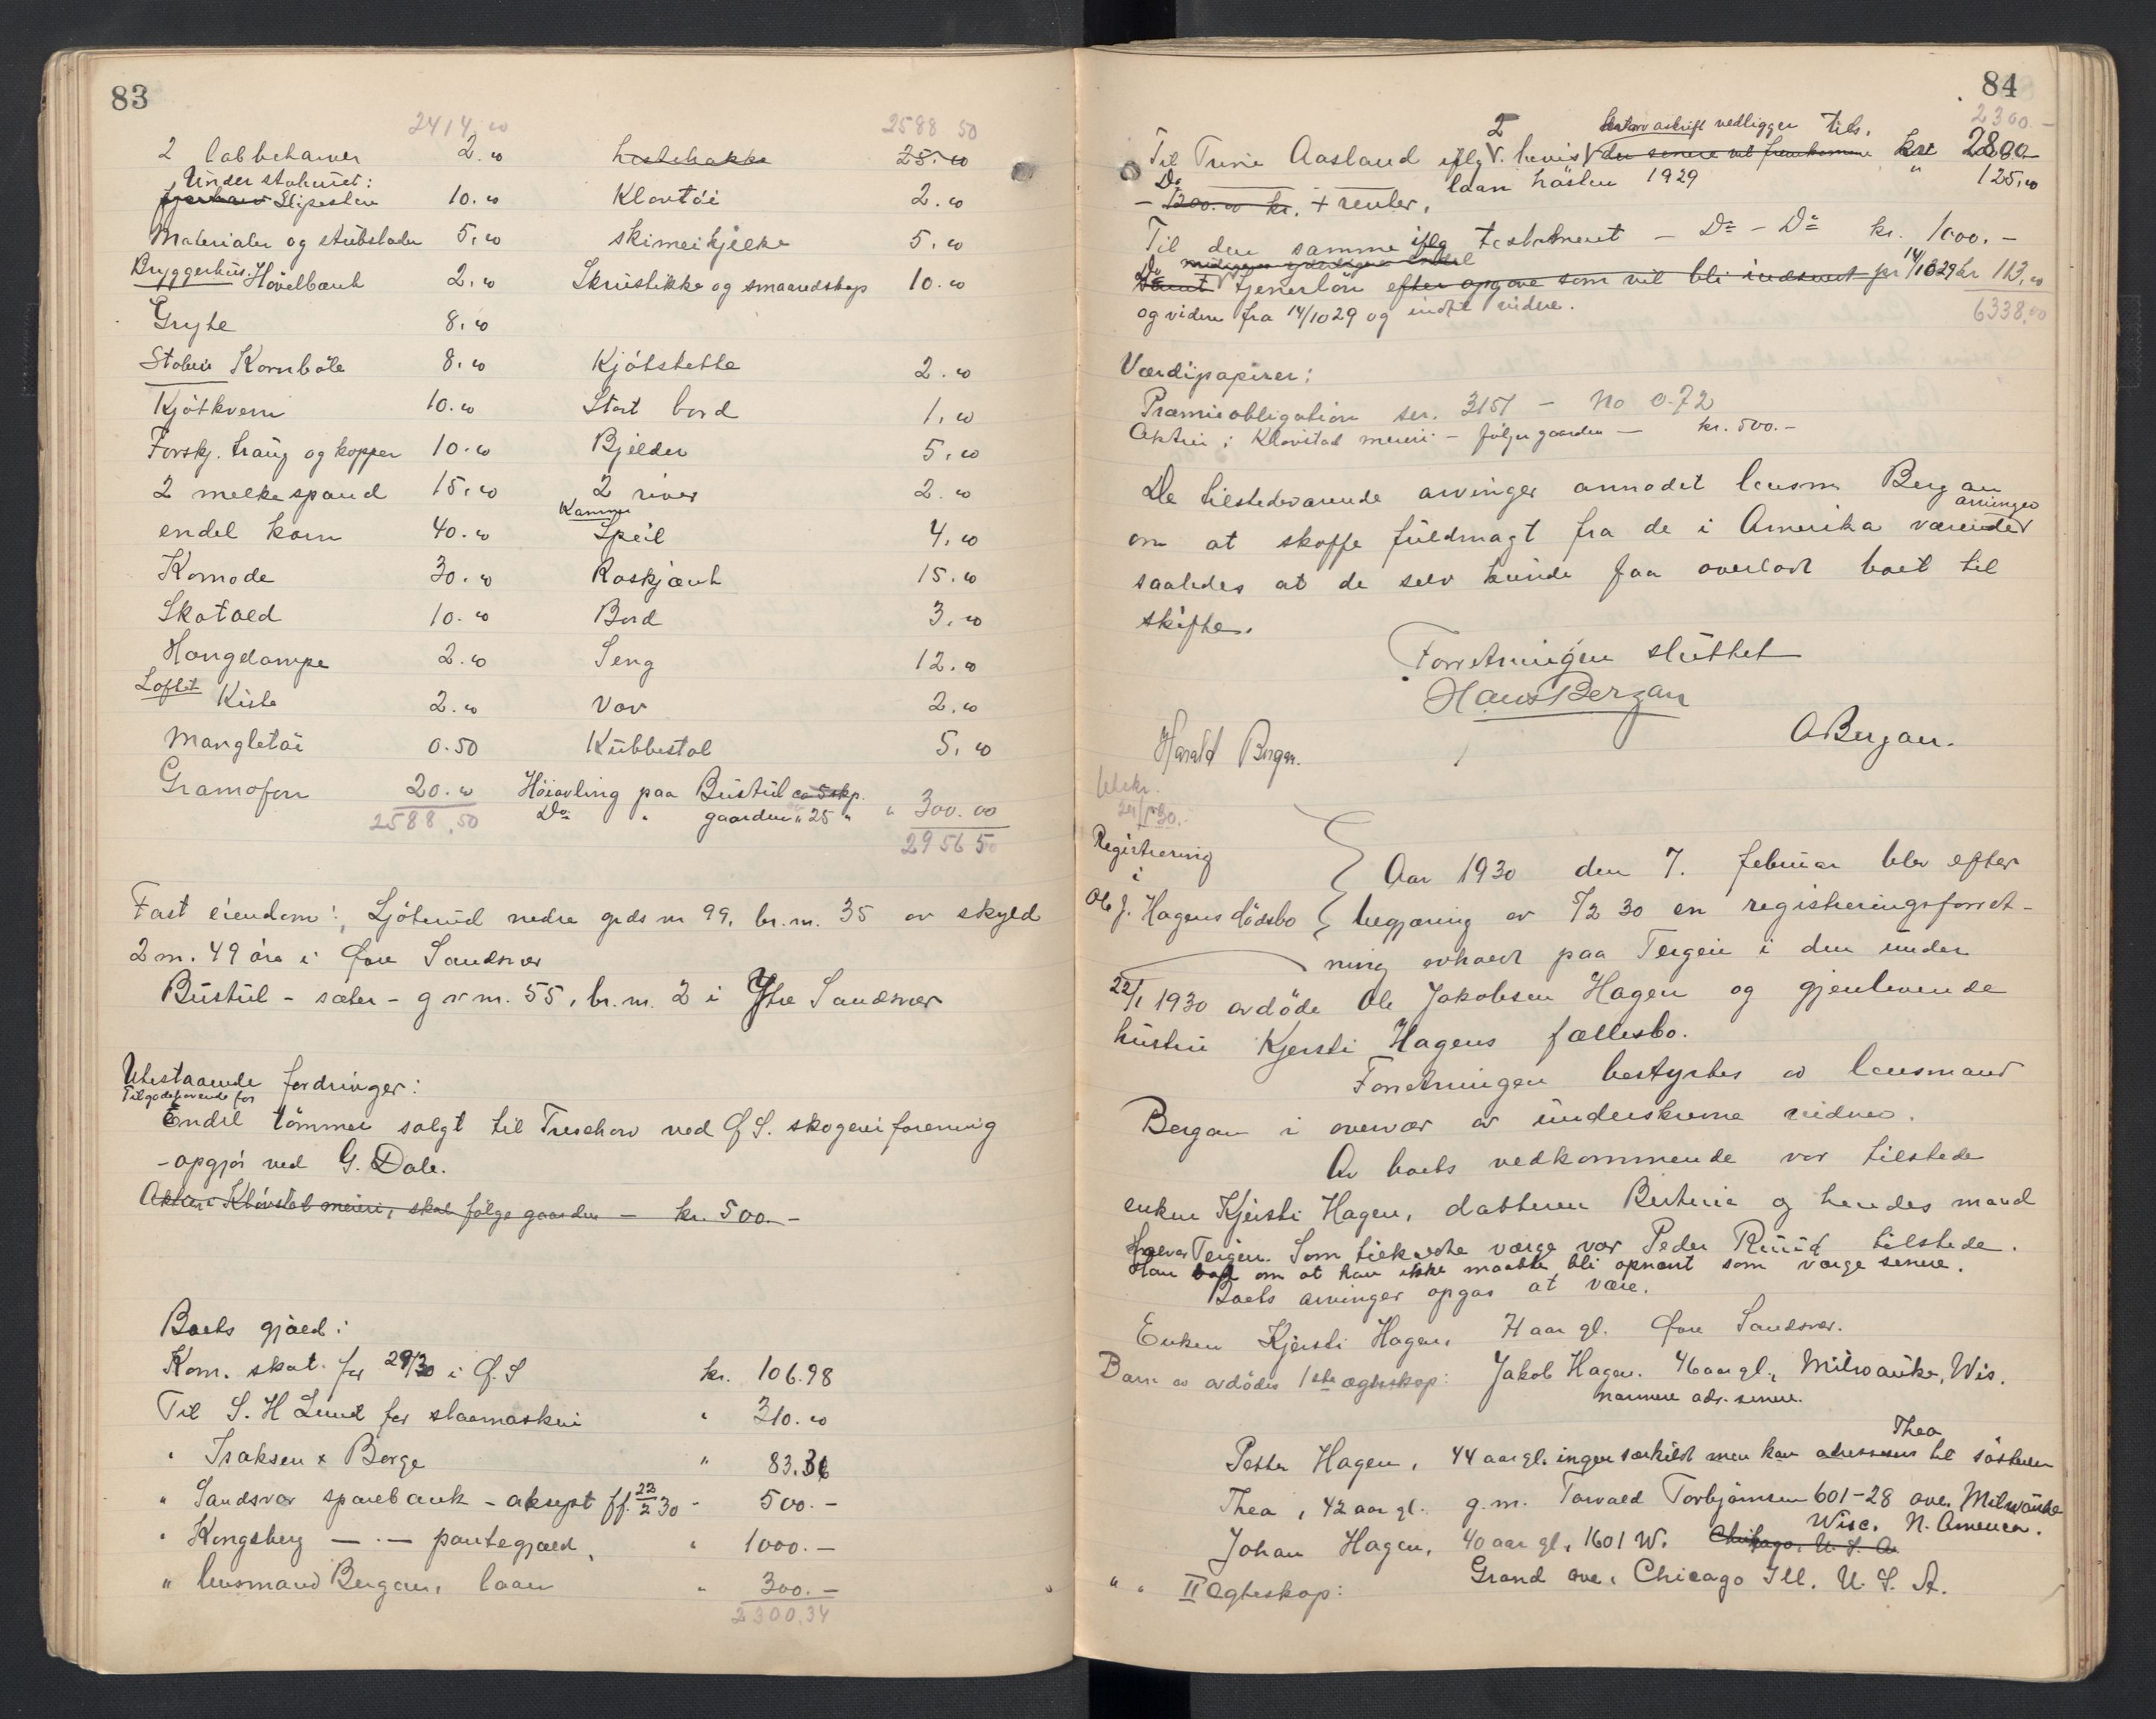 83
2414,00 2588 50
2 labbeharver 2.00 hestehakke 25.00
Under staburet:
Slipesten 10.00 Klovtöi 2.00
Materialer og stubstader 5,00 skimeikjelke 5.00
Bryggerhus. Hövelbænk 2.00 Skrustikke og smaaredskap 10.00
Gryte 8,00
Stabur Kornböle 8.00 Kjötstette 2.00
Kjötkvern 10.00 Stort bord 1,00
Forskj. traug og kopper 10.00 Bjelder 5,00
2 melkespand 15,00 2 river 2.00
Kammer
endel korn 40.00 Speil 4,00
Komode 30.00 Roskjænk 15.00
Skatold 10.00 Bord 3,00
Hengelampe 2.00 Seng 12.00
Loftet Kiste 2.00 Vov 2.00
Mangletöi 0.50 Kubbestol 5,00
Gramofon 20.00 Höiavling paa Bustul ca 5 skp.
2588,50 Do " gaarden " 25 " " 300.00
2956 50
Fast eiendom: Ljöterud nedre grds nr 99, br. nr. 35 av skyld
2 m. 49 öre i Övre Sandsvær
Bustul - sæter - g nr. 55, br. nr. 2 i Ytre Sandsvær
Utestaaende fordringer:
Tilgodehavende for
Endel tömmer solgt til Treschow ved Ö. S. skogeierforening
- opgjör ved G. Dale.
Aktier i Klövstad meieri, skal fölge gaarden - kr. 500.-
Boets gjæld:
Kom. skat. for 29/30 i Ö. S kr. 106.98
Til S. H Lund for slaamaskin " 310.00
" Isaksen & Borge " 83.36
" Sandsvær sparebank - aksept ff. 22/2 30 - 500.-
" Kongsberg — " — pantegjæld, " 1000.-
" lensmand Bergan, laan " 300.-
2300,34
84
2300.-
avskrift vedligger
Til Trine Aasland iflg. bevis der senere vil fremkomme kr 2800
Do laan hösten 1929 " 125,00
- 1200.00 kr. + renter,
Til den samme iflg testament - Do - Do kr. 1000.-
Do tjenerlön efter opgave som vil bli indsendt pr 14/10 29 kr 113,00
og videre fra 14/10 29 og indtil videre. 6338,00
Værdipapirer:
Præmieobligation ser. 3151 - No 072
Aktier i Klövstad meieri - fölger gaarden - kr. 500.-
De tilstedeværende arvinger anmodet lensm Bergan
om at skaffe fuldmagt fra de i Amerika værende arvinger
saaledes at de selv kunde faa overlatt boet til
skifte.
Forretningen sluttet
Hans Bergan
Harald Bergan. O Bergan.
Utskr.
Registrering
i
Ole J. Hagens dödsbo
Aar 1930 den 7. februar blev efter
begjæring av 5/2 30 en registreringsforret-
ning avholdt paa Teigen i den under
22/1 1930 avdöde Ole Jakobsen Hagen og gjenlevende
hustru Kjersti Hagens fællesbo.
Forretningen bestyrtes av lensmand
Bergan i overvær av underskrevne vidner.
Av boets vedkommende var tilstede
enken Kjersti Hagen, datteren Bertine og hendes mand
Halvor Teigen. Som tilkaldte værge var Peder Ruud tilstede.
Han bad om at han ikke maatte bli opnævnt som værge senere.
Boets arvinger opgas at være.
Enken Kjersti Hagen, 71 aar gl. Övre Sandsvær.
Barn av avdödes 1ste ægteskap: Jakob Hagen. 46 aar gl., Milwauke, Wis.
nærmere adr. senere.
Petter Hagen, 44 aar gl. ingen særkildt men kan adresseres til söstern Thea
Thea, 42 aar gl. g.m. Torvald Torbjörnsen 601-28 ave. Milwauke
Wisc. N. America.
Johan Hagen, 40 aar gl, 1601 W. Chikago, U. S. A.
Grand ave, Chicago Ill. U. S. A.
" " II ægteskap: